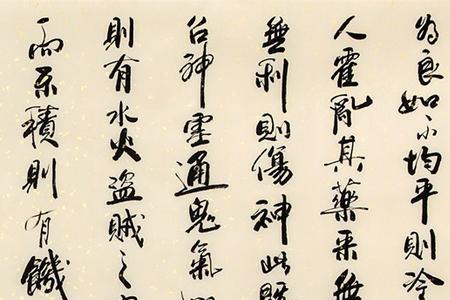 為良如不均平則冷
人霍亂其藥采無
無利則傷神此既
召神靈通鬼氣
則有水火盜賊之
而不積則有饑